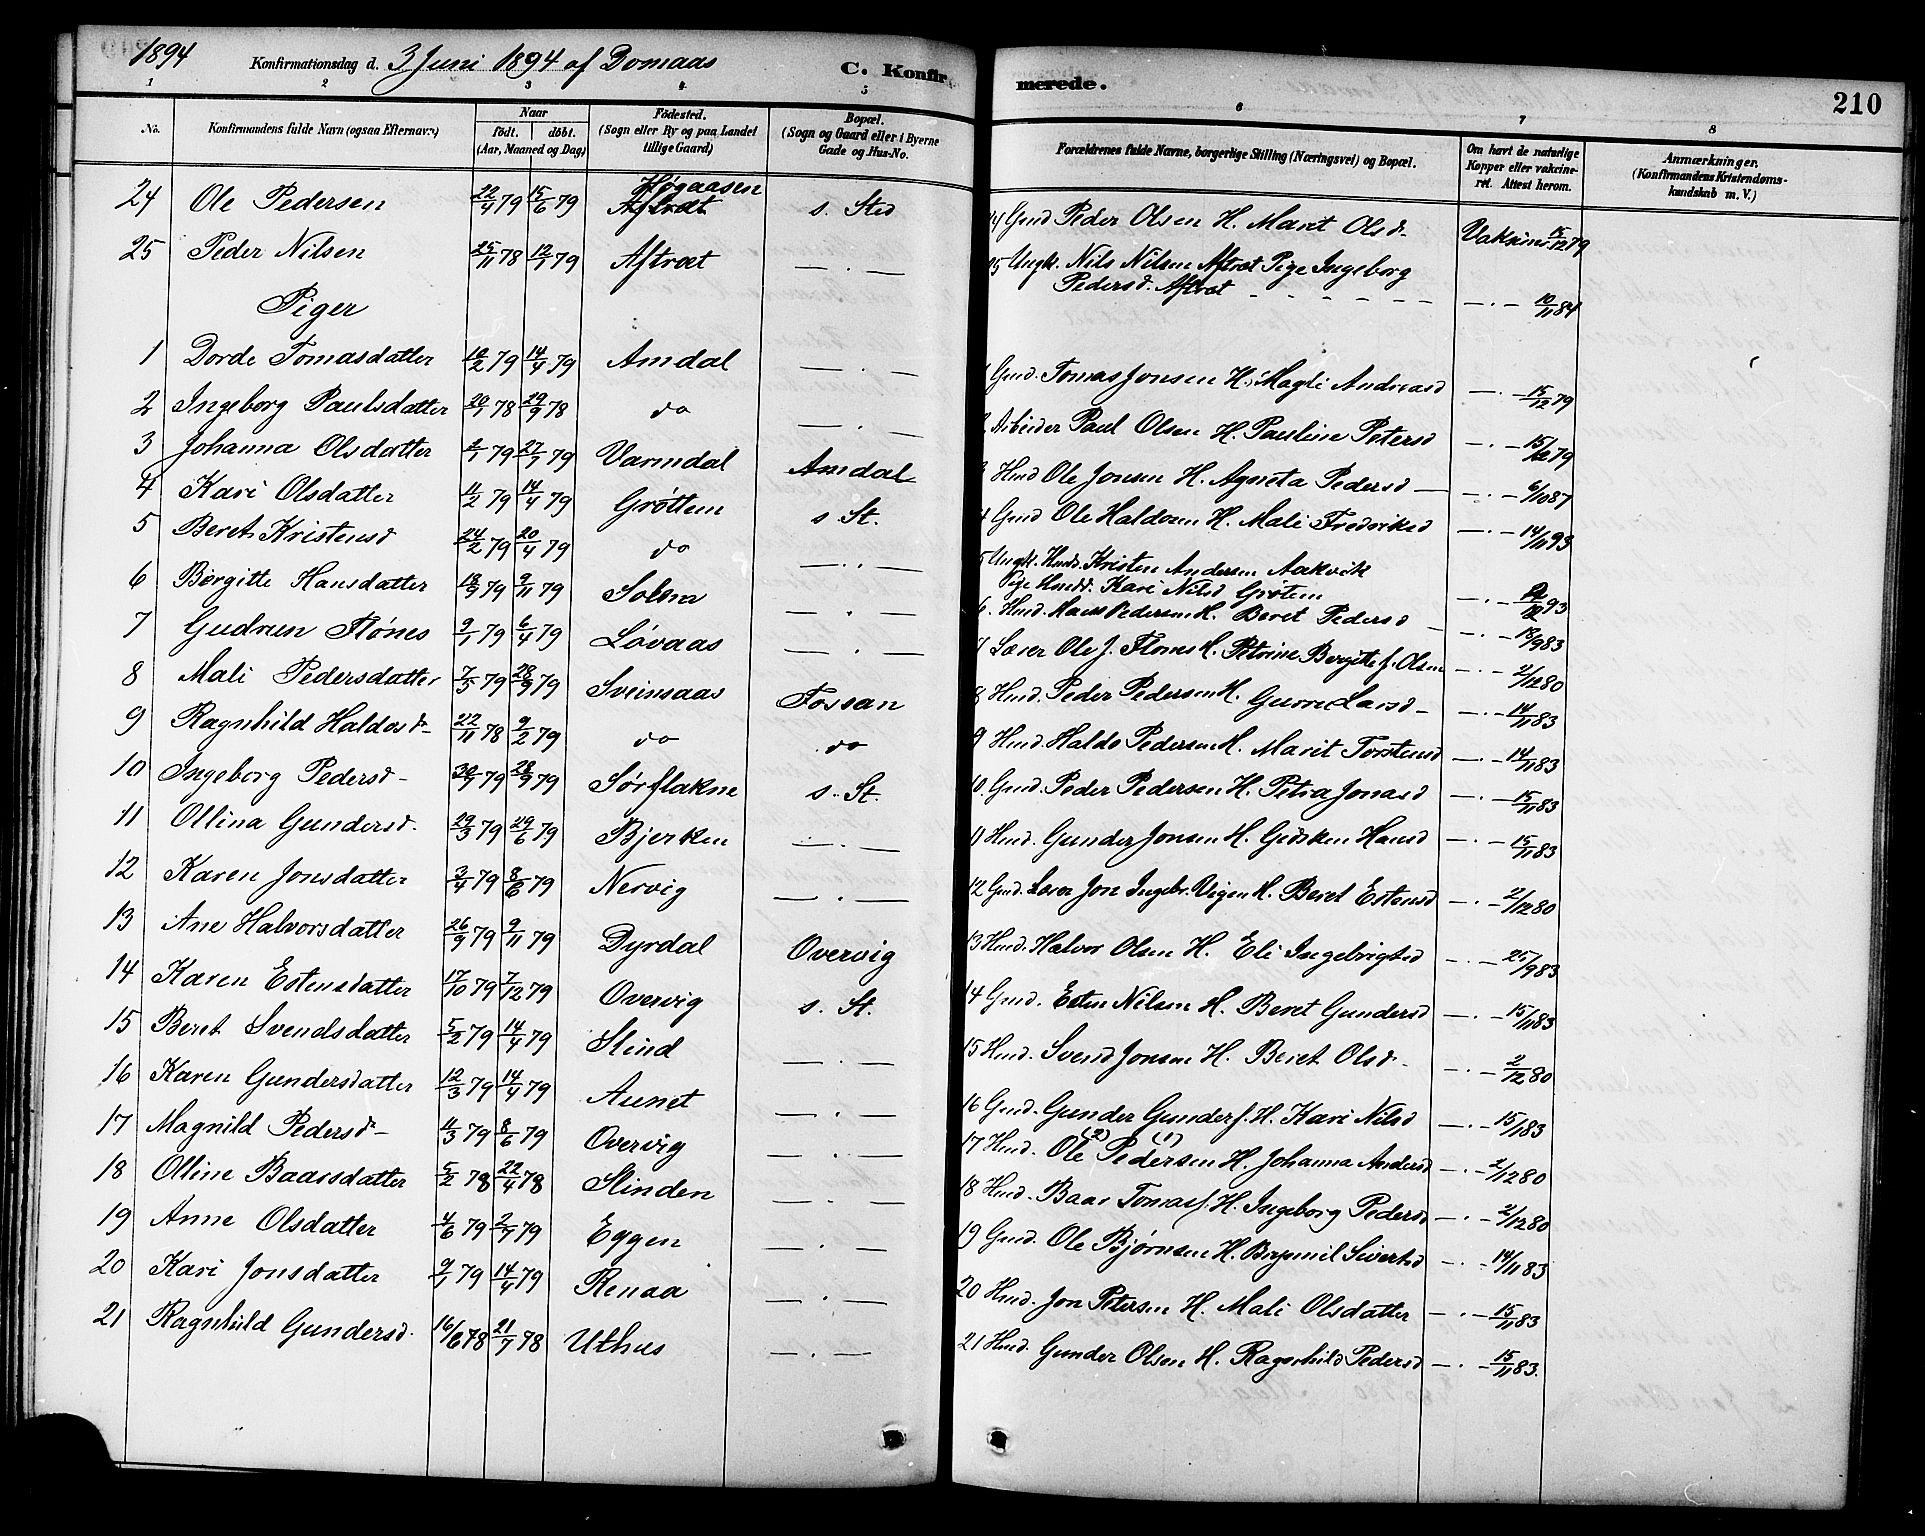 1894 Konfirmationsdag d. 3 Juni 1894 af Domaas C. Konfirmerede. 210
1 2 3 4 5 6 7 8
No. Konfirmandens fulde Navn (ogsaa Efternavn) Naar født. døbt. (Aar, Maaned og Dag) Födested. (Sogn eller By og paa Landet tillige Gaard) Bopæl. (Sogn og Gaard eller i Byerne Gade og Hus-No. Forældrenes fulde Navne, borgerlige Stilling (Næringsvei) og Bopæl. Om havt de naturlige Kopper eller vakcineret. Attest herom. Anmærkninger. (Konfirmandens Kristendomskundskab m. V.)
24 Ole Pedersen 22/4 79 15/6 79 Høgaasen Aftræt s. Sted 24 Gmd Peder Olsen H. Marit Olsd. Vakciner 15/12 79
25 Peder Nilsen 25/11 78 12/1 79 Aftræt — . — 25 Ungk. Nils Nilsen Aftræt Pige Ingeborg
Pedersd. Aftræt — . — 10/11 84
Piger
1 Dorde Tomasdatter 10/2 79 14/4 79 Amdal — . — 1 Gmd. Tomas Jonsen H. Magli Andreasd — . — 15/12 79
2 Ingeborg Paulsdatter 20/1 78 29/9 78 do — . — 2 Arbeider Paul Olsen H. Pauline Petersd — . — 15/12 79
3 Johanna Olsdatter 2/1 79 27/7 79 Varmdal Amdal 3 Hmd Ole Jonsen H. Agneta Pedersd — . — 6/10 87
4 Kari Olsdatter 11/2 79 14/4 79 Grøttem s. St. 4 Gmd Ole Haldosen H. Mali Frederiksd — . — 14/11 93
5 Beret Kristensd 24/2 79 20/4 79 do — . — 5 Ungk. Hmds. Kristen Andersen Aakvik
Pige Hmdd. Kari Nilsd Grøtem — . — 93
6 Børgitte Hansdatter 18/9 79 9/11 79 Solem — . — 6. Hmd. Hans Pedersen H. Beret Pedersd — . — 18/9 83
7 Gudrun Flønes 9/1 79 6/4 79 Løvaas — . — 7 Lærer Ole J. Flønes H. Petrine Bergitte f. Olsen — . — 2/12 80
8 Mali Pedersdatter 7/3 79 28/9 79 Sveinsaas Fossan 8 Hmd. Peder Pedersen H. Gurre Larsd — . — 14/11 83
9 Ragnhild Haldosd. 22/11 78 9/2 79 do do 9 Hmd. Haldo Pedersen H. Marit Torstensd — . — 14/11 83
10 Ingeborg Pedersd. 30/7 79 28/9 79 Sørflakne s. St. 10. Gmd. Peder Pedersen H. Petra Jonasd — . — 15/11 83
11 Ollina Gundersd. 29/3 79 29/6 79 Bjerken — . — 11 Hmd. Gunder Jonsen H. Gidsken Hansd — . — 15/11 83
12 Karen Jonsdatter 3/4 79 8/6 79 Nervig — . — 12 Gmd. Lærer Jon Ingebr. Vigen H. Beret Estensd — . — 2/12 80
13 Ane Halvorsdatter 26/9 79 9/11 79 Dyrdal Overvig 13 Hmd. Halvor Olsen H. Eli Ingebrigtsd — . — 25/9 83
14 Karen Estensdatter 17/10 79 7/12 79 Overvig s. St. 14 Gmd. Esten Nilsen H. Beret Gundersd — . — 15/11 83
15 Beret Svendsdatter 5/2 79 14/4 79 Slind — . — 15 Hmd. Svend Jonsen H. Beret Olsd. — . — 2/12 80
16 Karen Gundersdatter 12/3 79 14/4 79 Aunet — . — 16 Gmd. Gunder Gunders. H. Kari Nilsd — . — 15/11 83
17 Magnild Pedersd. 11/3 79 8/6 79 Overvig — . — 17 Hmd. Ole (2) Pedersen (1) H. Johanna Andersd — . — 2/12 80
18 Olline Baarsdatter 5/2 78 22/4 78 Slinden — . — 18 Hmd. Baar Tomass. H. Ingeborg Pedersd — . — 2/12 80
19 Anne Olsdatter 4/6 79 2/7 79 Eggen — . — 19 Gmd. Ole Bjørnsen H. Brynnil Sivertsd — . — 14/11 83
20 Kari Jonsdatter 9/1 79 14/4 79 Renaa — . — 20 Hmd. Jon Petersen H. Mali Olsdatter — . — 15/11 83
21 Ragnhild Gundersd. 16/6 78 21/7 78 Uthus — . — 21 Hmd. Gunder Olsen H. Ragnhild Pedersd — . — 15/11 83.